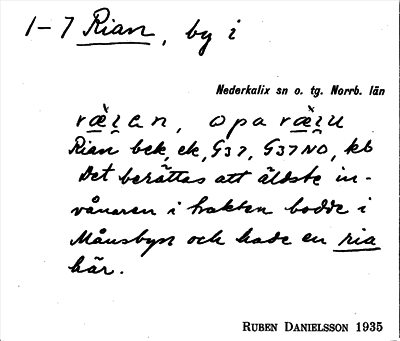 1-7 Rian, by i
Nederkalix sn o. tg. Norrb. län
opa
Rian bek, ek, G37, G37NO, kb
Det berättas att äldste in-
vånaren i trakten bodde i
Månsbyn och hade en ria
här.
RUBEN DANIELSSON 1935